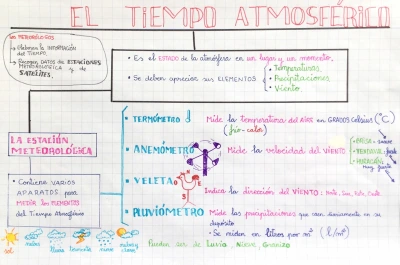 EL TIEMPO ATMOSFÉRICO
LOS METEORÓLOGOS
→ Elaboran la INFORMACIÓN
del TIEMPO.
→ Recogen DATOS de ESTACIONES
METEOROLÓGICA y de
SATÉLITES.
• Es el ESTADO de la atmósfera en un lugar y un momento.
• Se deben apreciar sus ELEMENTOS
• Temperaturas.
• Precipitaciones.
• Viento.
LA ESTACIÓN
METEOROLÓGICA
• Contiene VARIOS
APARATOS para
MEDIR los ELEMENTOS
del Tiempo Atmosférico
• TERMÓMETRO
Mide la temperatura del AIRE en GRADOS Celsius (°C)
(frío - calor)
• ANEMÓMETRO
Mide la velocidad del VIENTO
• BRISA → suave
• VENTOLERA → fuerte
• HURACÁN
muy fuerte
• VELETA
N
O
E
S
Indica la dirección del VIENTO: Norte, Sur, Este, Oeste.
• PLUVIÓMETRO
Mide las precipitaciones que caen diariamente en su
depósito
• Se miden en litros por m² (l/m²)
Pueden ser de Lluvia, Nieve, Granizo
sol
nubes
lluvia
tormenta
nieve
nubes y
claros